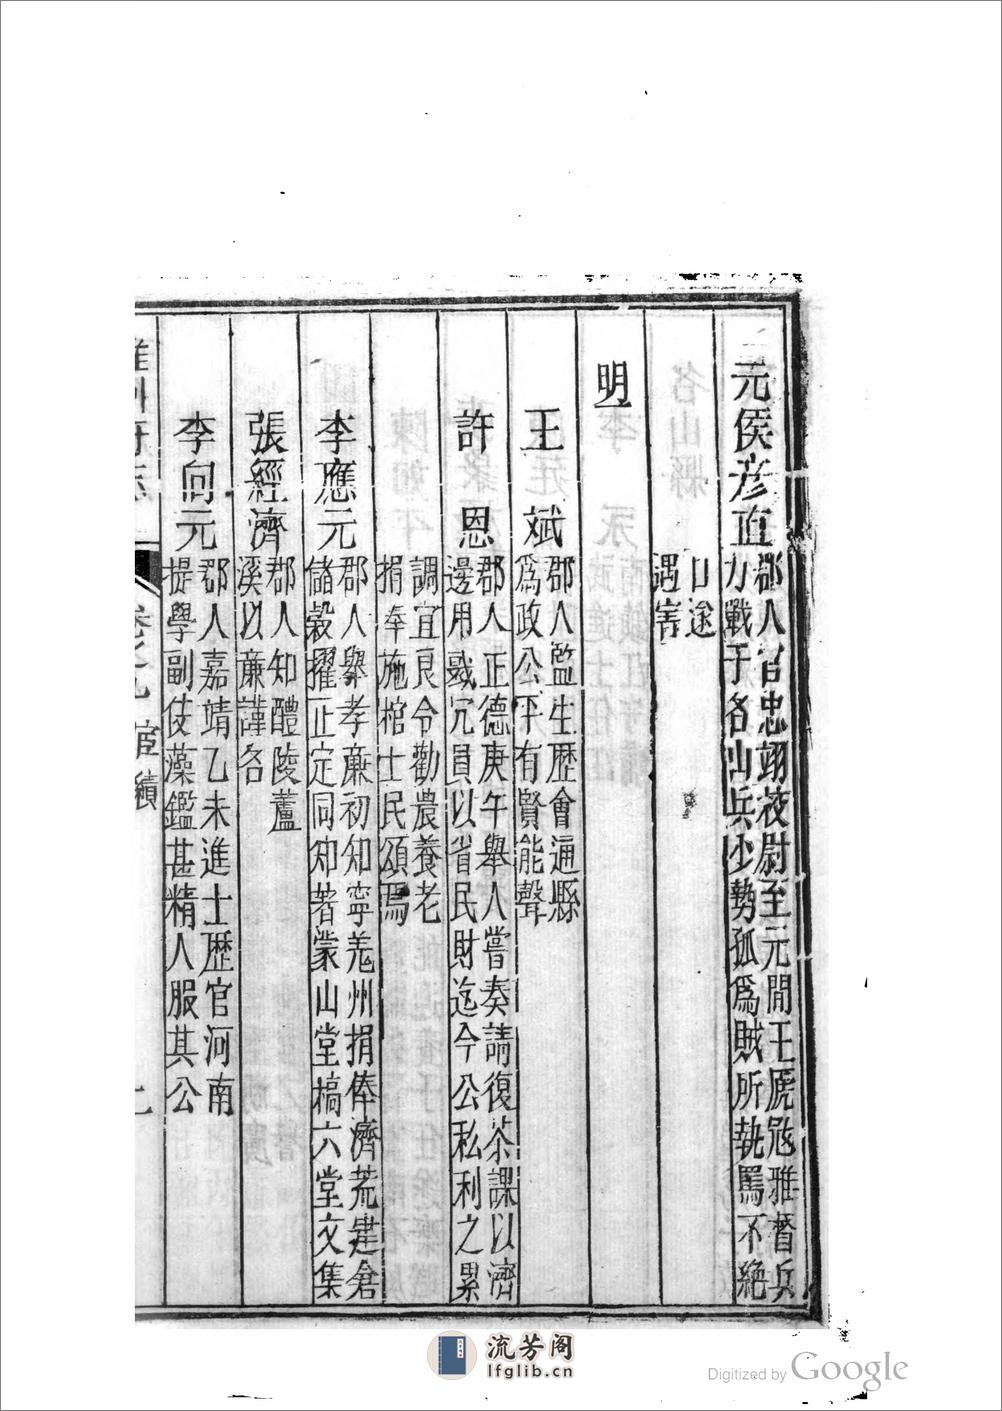 元侯彦直
郡人官忠翊校尉至元間王虎寇雅督兵
力戰于名山兵少勢孤爲賊所執罵不絶
口途
遇害
明
王斌
郡人監生歴會通縣
爲政公平有賢能聲
許恩
郡人正德庚午舉人嘗奏請復茶課以濟
邊用裁冗員以省民財迄今公私利之累
調宜良令勸農養老
捐奉施棺士民頌焉
李應元
郡人舉孝廉初知寧羌州捐俸濟荒建倉
儲穀擢正定同知著蒙山堂槁六堂文集
張經濟
郡人知醴陵蘆
溪以亷謹名
李向元
郡人嘉靖乙未進士歴官河南
提學副使藻鑑甚精人服其公
雅州府志
卷之九 宦績
流芳阁
lfglib.cn
Digitized by Google